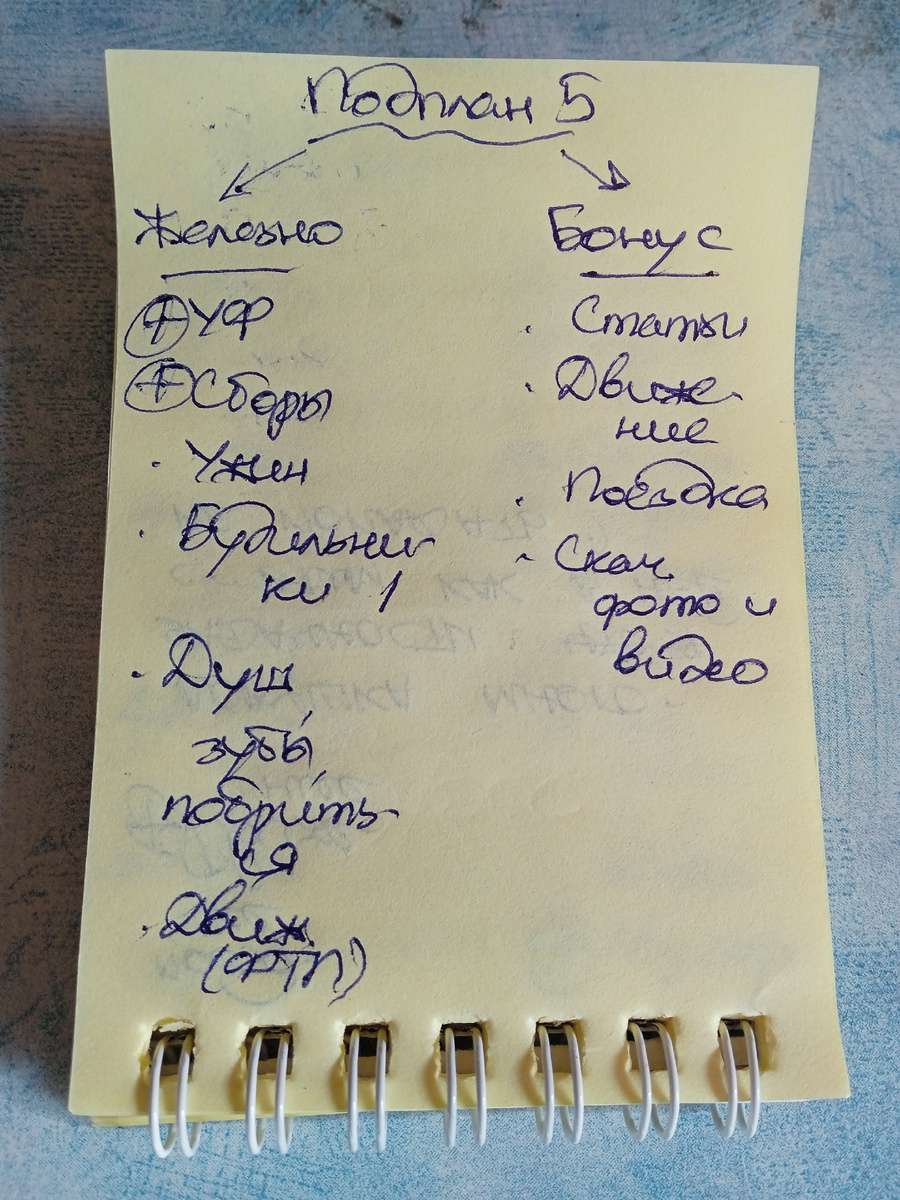 Подплан 5
Железно
⊕ УФ
⊕ Сборы
· Ужин
· Будильни-
ки 1
· Душ
зубы
побрить-
ся
· Движ.
(ФТП)
Бонус
· Статьи
· Движе-
ние
· Поездка
· Скач.
фото и
видео